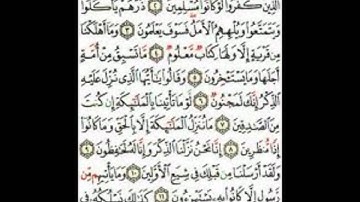 الَّذِينَ كَفَرُوا لَوْ كَانُوا مُسْلِمِينَ ٢ ذَرْهُمْ يَأْكُلُوا
وَيَتَمَتَّعُوا وَيُلْهِهِمُ الْأَمَلُ فَسَوْفَ يَعْلَمُونَ ٣ وَمَا أَهْلَكْنَا
مِن قَرْيَةٍ إِلَّا وَلَهَا كِتَابٌ مَّعْلُومٌ ٤ مَّا تَسْبِقُ مِنْ أُمَّةٍ
أَجَلَهَا وَمَا يَسْتَـْٔخِرُونَ ٥ وَقَالُوا يَٰأَيُّهَا الَّذِي نُزِّلَ عَلَيْهِ
الذِّكْرُ إِنَّكَ لَمَجْنُونٌ ٦ لَّوْ مَا تَأْتِينَا بِالْمَلَٰٓئِكَةِ إِن كُنتَ
مِنَ الصَّٰدِقِينَ ٧ مَا نُنَزِّلُ الْمَلَٰٓئِكَةَ إِلَّا بِالْحَقِّ وَمَا كَانُوا
إِذًا مُّنظَرِينَ ٨ إِنَّا نَحْنُ نَزَّلْنَا الذِّكْرَ وَإِنَّا لَهُ لَحَٰفِظُونَ ٩
وَلَقَدْ أَرْسَلْنَا مِن قَبْلِكَ فِي شِيَعِ الْأَوَّلِينَ ١٠ وَمَا يَأْتِيهِم مِّن
رَّسُولٍ إِلَّا كَانُوا بِهِ يَسْتَهْزِءُونَ ١١ كَذَٰلِكَ نَسْلُكُهُ فِي